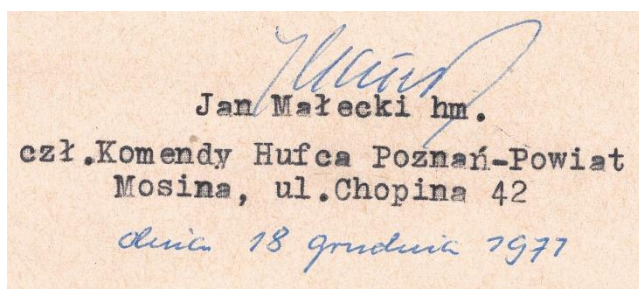 Jan Małecki hm.
czł.Komendy Hufca Poznań-Powiat
Mosina, ul.Chopina 42
dnia 18 grudnia 1971